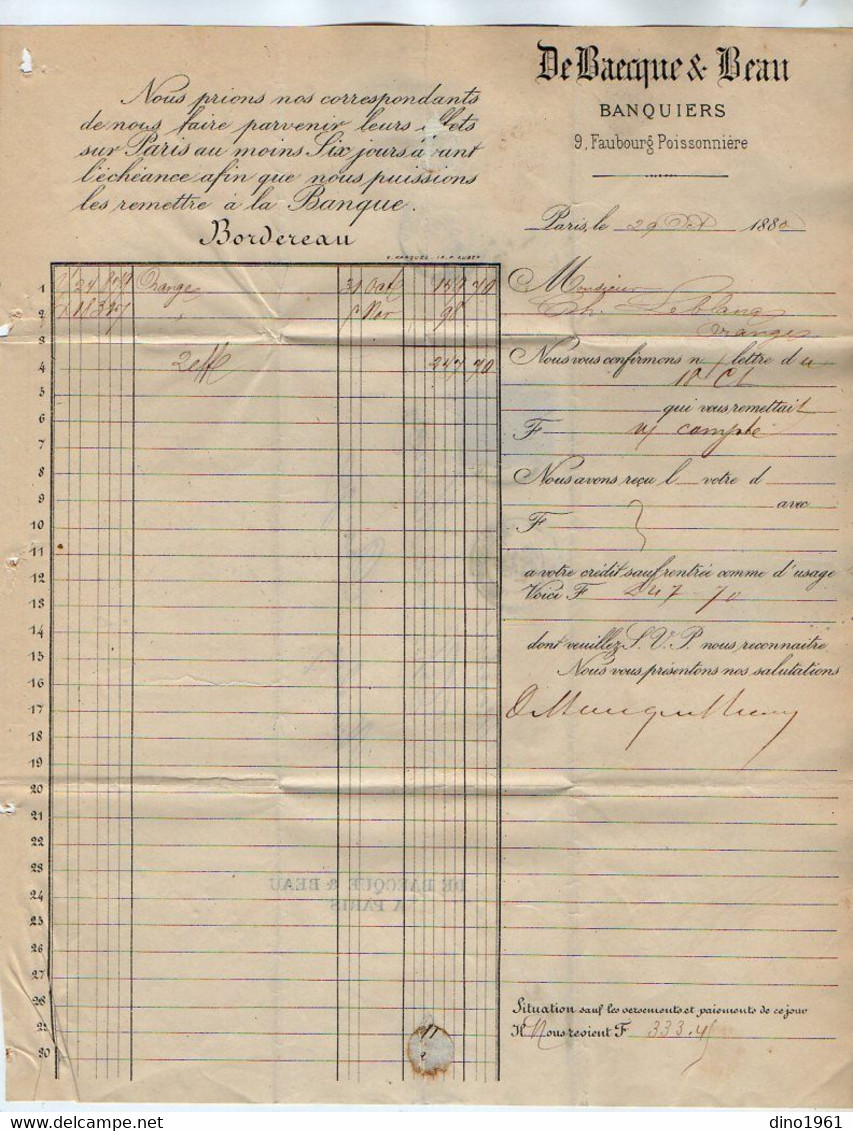 De Baecque & Beau
BANQUIERS
9, Faubourg Poissonnière
Nous prions nos correspondants
de nous faire parvenir leurs
sur Paris au moins Six jours avant
l'échéance afin que nous puissions
les remettre à la Banque.
Bordereau
Paris, le 29 Oct 1880
1 Orange 31 Oct 70
2 " 5 Nov 98
3
4 2 eff 247 70
5
6
7
8
9
10
11
12
13
14
15
16
17
18
19
20
21
22
23
24
25
26
27
28
29
30
Monsieur
Ch. Leblanc
Orange
Nous vous confirmons n/ lettre du
18 Ct
qui vous remettait
F n/ compte
Nous avons reçu l votre d
avec
F
a votre crédit sauf rentrée comme d'usage
Voici F 247-70
dont veuillez S. V. P. nous reconnaitre
Nous vous présentons nos salutations
DE BAECQUE & BEAU
A PARIS
Situation sauf les versements et paiements de ce jour
Il Nous revient F 333.45
dino1961